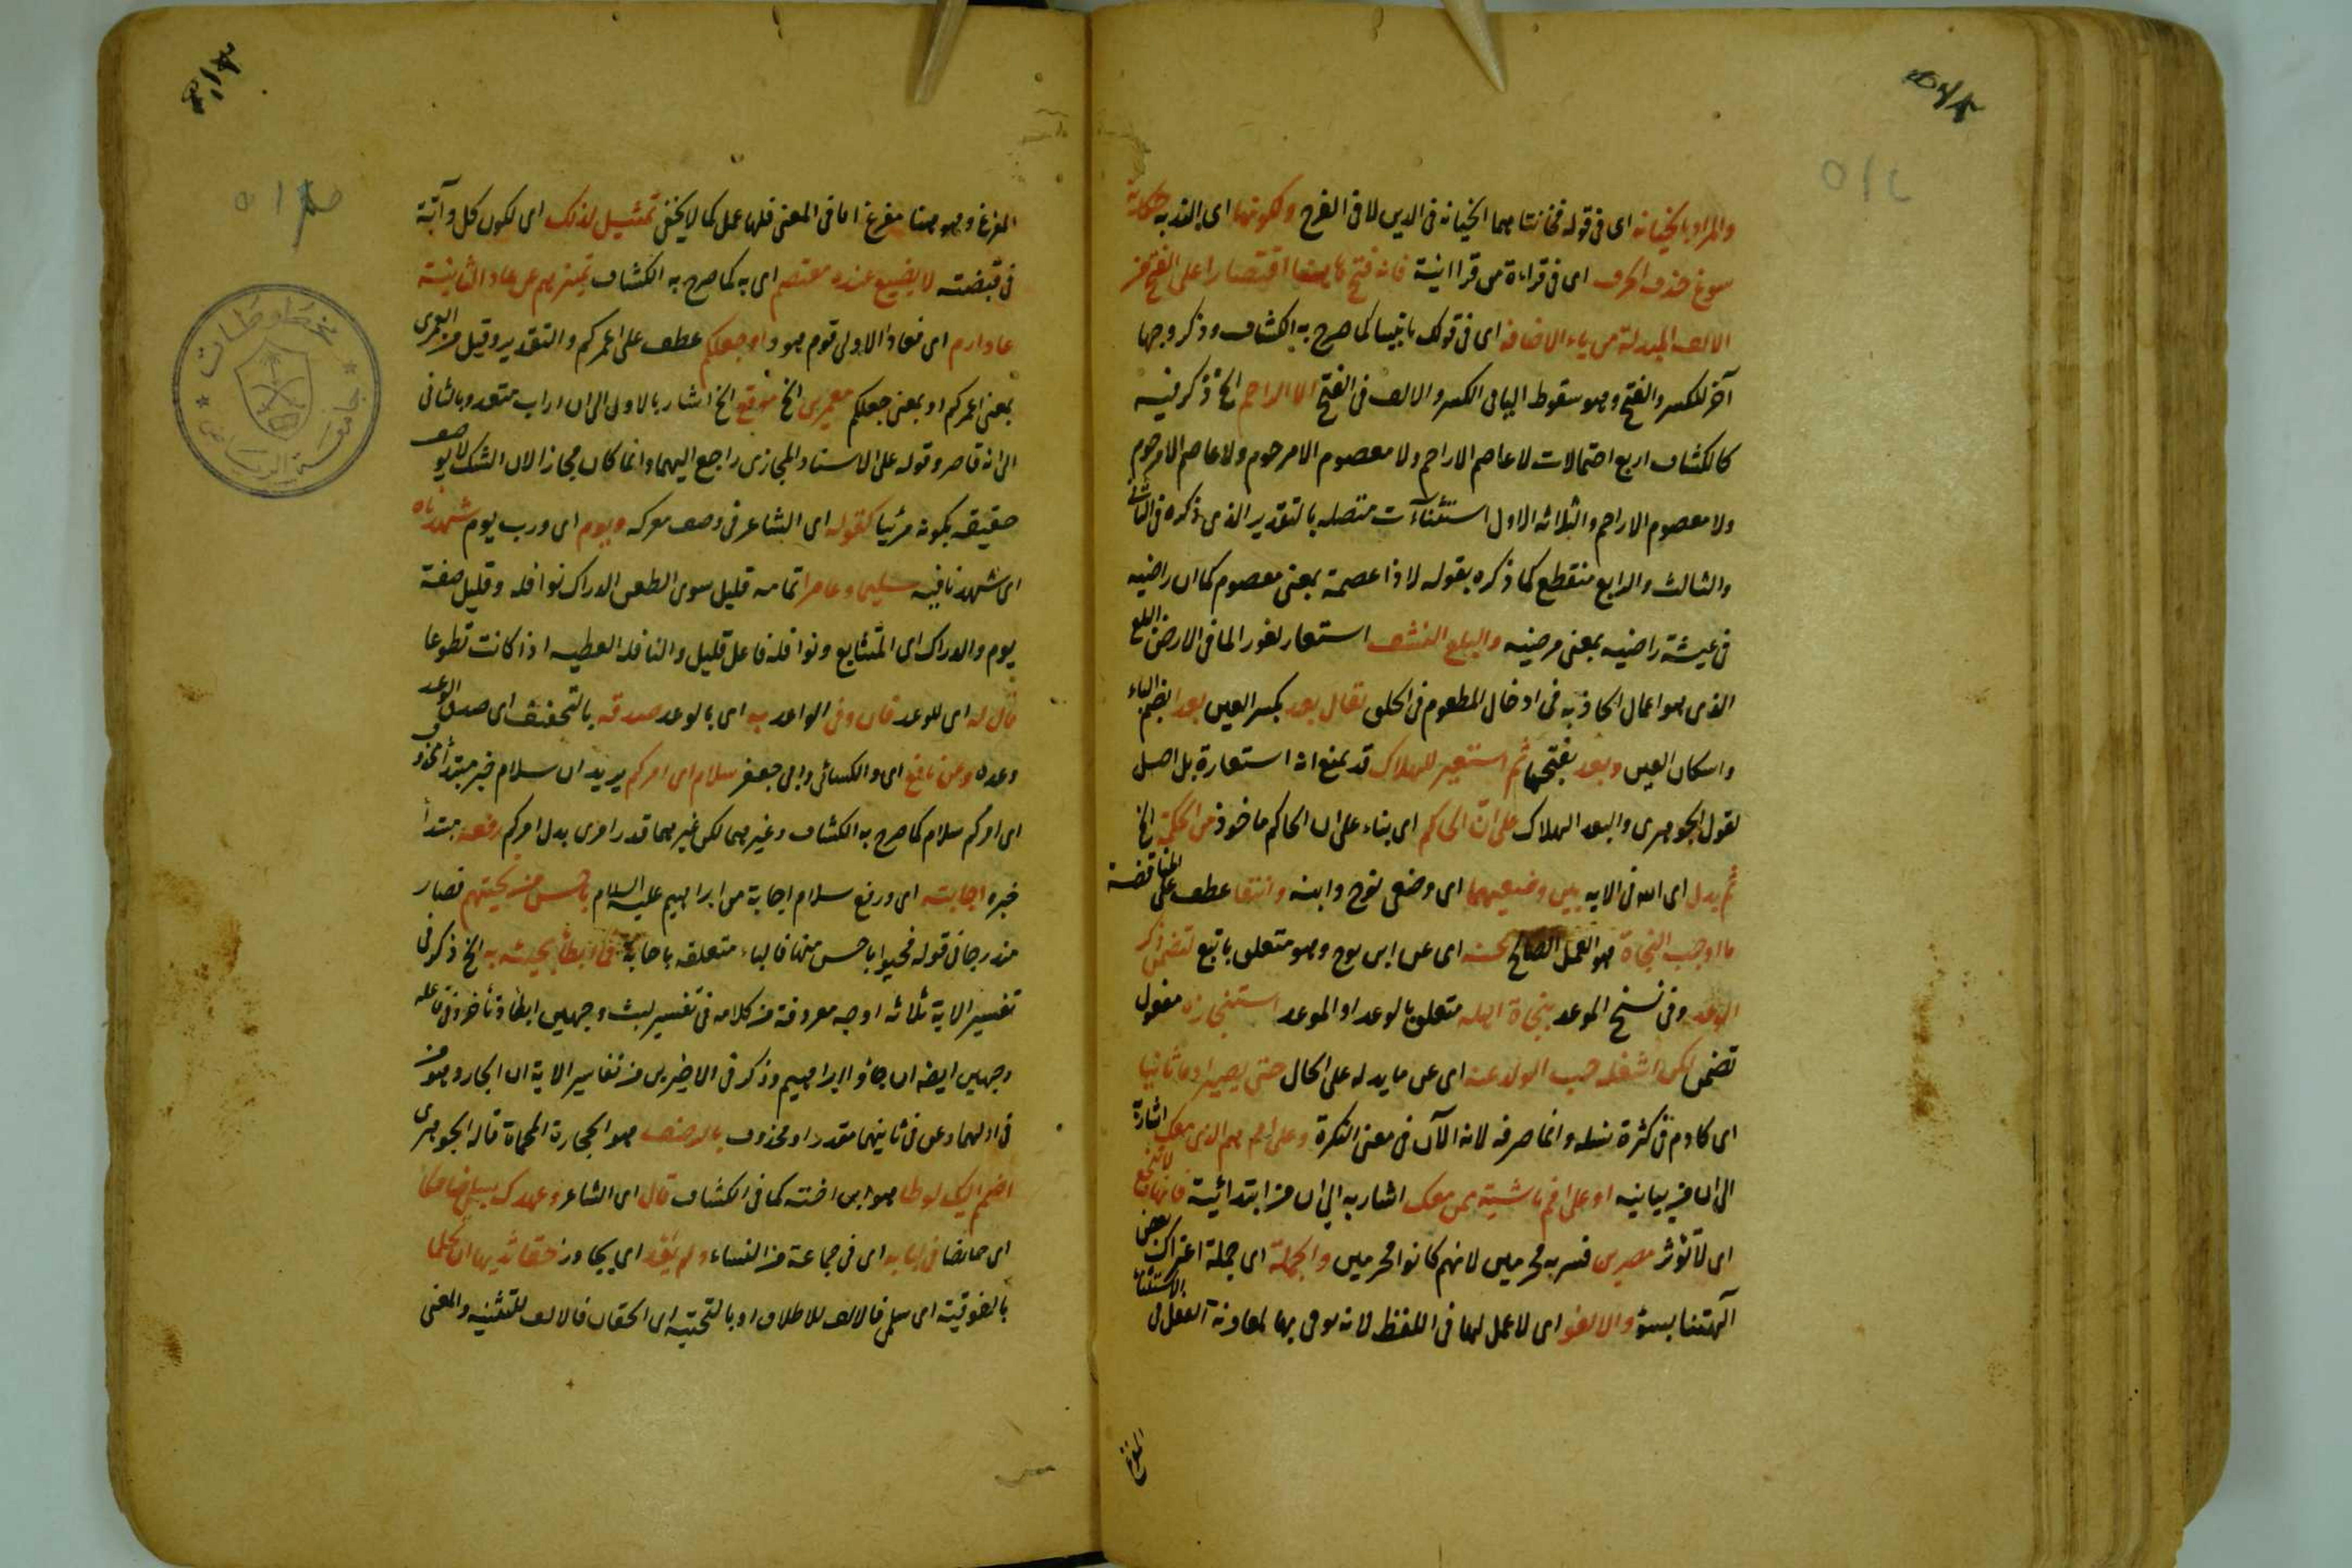 والمراد بالخيانة اى فى قوله فخانتاهما الخيانه فى الدين لا فى الفرج ولكونها اى الندبه حكاية
سوغ حذف الحرف اى فى قراءة من قرا ابنه فانه فتح اقتصارا على الفتح من
الالف المبدلة من ياء الاضافه اى فى قولك يا بنيا كما صرح به الكشاف وذكر وجها
آخر للكسر والفتح وهو سقوط اليا فى الكسر والالف فى الفتح الا الراحم الخ ذكر فيه
كالكشاف اربع احتمالات لا عاصم الا راحم ولا معصوم الا مرحوم ولا عاصم الا مرحوم
ولا معصوم الا راحم والثلاثه الاول استثنآت متصله بالتقدير الذى ذكره فى الثانى
والثالث والرابع منقطع كما ذكره بقوله لا ذا عصمة بمعنى معصوم كما ان راضيه
فى عيشة راضيه بمعنى مرضيه والبلع النشف استعار لغور الما فى الارض البلع
الذى هو اعمال الجاذبه فى ادخال المطعوم فى الحلق يقال بعد بكسر العين بعدا بضم الباء
واسكان العين وبعد بفتحها ثم استعير للهلاك قد يمنع انه استعارة بل اصل
لقول الجوهرى والبعد الهلاك على ان الحاكم اى بناء على ان الحاكم ماخوذ من الحكمة الخ
ثم يدل اى الله فى الايه بين وضعيهما اى وضعى نوح وابنه وانتفا عطف على المناقضة
ما اوجب النجاة هو العمل الصالح عنه اى عن ابن نوح وهو متعلق باتبع لتضمن ذكر
الوعد وفى نسخ الموعد بنجاة اهله متعلق بالوعد او الموعد استنجازه مفعول
تضمن لكن اشغله حب الولد عنه اى عن ما يدله على الحال حتى يصير ادما ثانيا
اى كادم فى كثرة نسله وانما صرفه لانه الآن فى معنى النكرة وعلى امم هم الذين معك اشارة
الى ان من بيانيه او على امم ناشية ممن معك اشار به الى ان من ابتدائية فانها لا تنفع
اى لا تؤثر مصرين فسر به مجرمين لانهم كانوا مجرمين والجملة اى جملة اعتراك بعض
آلهتنا بسوء والا لغو اى لا عمل لها فى اللفظ لانه يوتى بها لمعاونة الفعل فى الاستثناء
المفرغ
المفرغ وهو هنا مفرغ اما فى المعنى فلها عمل كما لا يخفى تمثيل لذلك اى لكون كل دآبة
فى قبضته لا يضيع عنده معتصم اى به كما صرح به الكشاف تميزهم عن عاد الثانية
عاد ارم اى فعاد الاولى قوم هود او جعلكم عطف على اعمركم والتقدير وقيل من العمرى
بمعنى اعمركم او بمعنى جعلكم معمرين الخ موقع الخ اشار بالاول الى ان اراب متعد وبالثانى
الى انه قاصر وقوله على الاسناد المجازى راجع اليهما وانما كان مجازا لان الشك لا يوصف
حقيقه بكونه مرئيا كقوله اى الشاعر فى وصف معركه ويوم اى ورب يوم شهدناه
اى شهدنا فيه سليما وعامرا تمامه قليل سوى الطعن الدراك نوافله وقليل صفة
يوم والدراك اى المتتابع ونوافله فاعل قليل والنافله العطيه اذا كانت تطوعا
قال له اى للوعد فان وفى الواعد به اى بالوعد صدقه بالتخفيف اى صدق الوعد
وعده وعن نافع اى والكسائى وابى جعفر سلام اى امركم يريد ان سلام خبر مبتدأ محذوف
اى امركم سلام كما صرح به الكشاف وغيرهما لكن غيرهما قدر امرى بدل امركم رفعه مبتدأ
خبره اجابته اى ورفع سلام اجابة من ابراهيم عليه السلام باحسن من تحيتهم فصار
مندرجا فى قوله فحيوا باحسن منها فالباء متعلقه باجابة فما ابطأ مجيئه به الخ ذكر فى
تفسير الاية ثلاثه اوجه معروفة من كلامه فى تفسير لبث وجهين ابطا وتأخر وفى فاعله
وجهين ايضا ان جاء او ابراهيم وذكر فى الاخيرين من تفاسير الاية ان الجار وهو من
فى اولهما وعن فى ثانيهما مقدر او محذوف بالرضف هو الحجارة المحماة قاله الجوهرى
اضمم اليك لوطا هو ابن اخته كما فى الكشاف قال اى الشاعر وعهدى بسلمى ضاحكا
اى حائضا فى لبابه اى فى جماعة من النساء ولم يعد اى يجاوز حقا ثديها ان تحلما
بالفوقية اى سلمى فالالف للاطلاق او بالتحتيه اى الحقان فالالف للتثنيه والمعنى
جامعة الرياض
مخطوطات